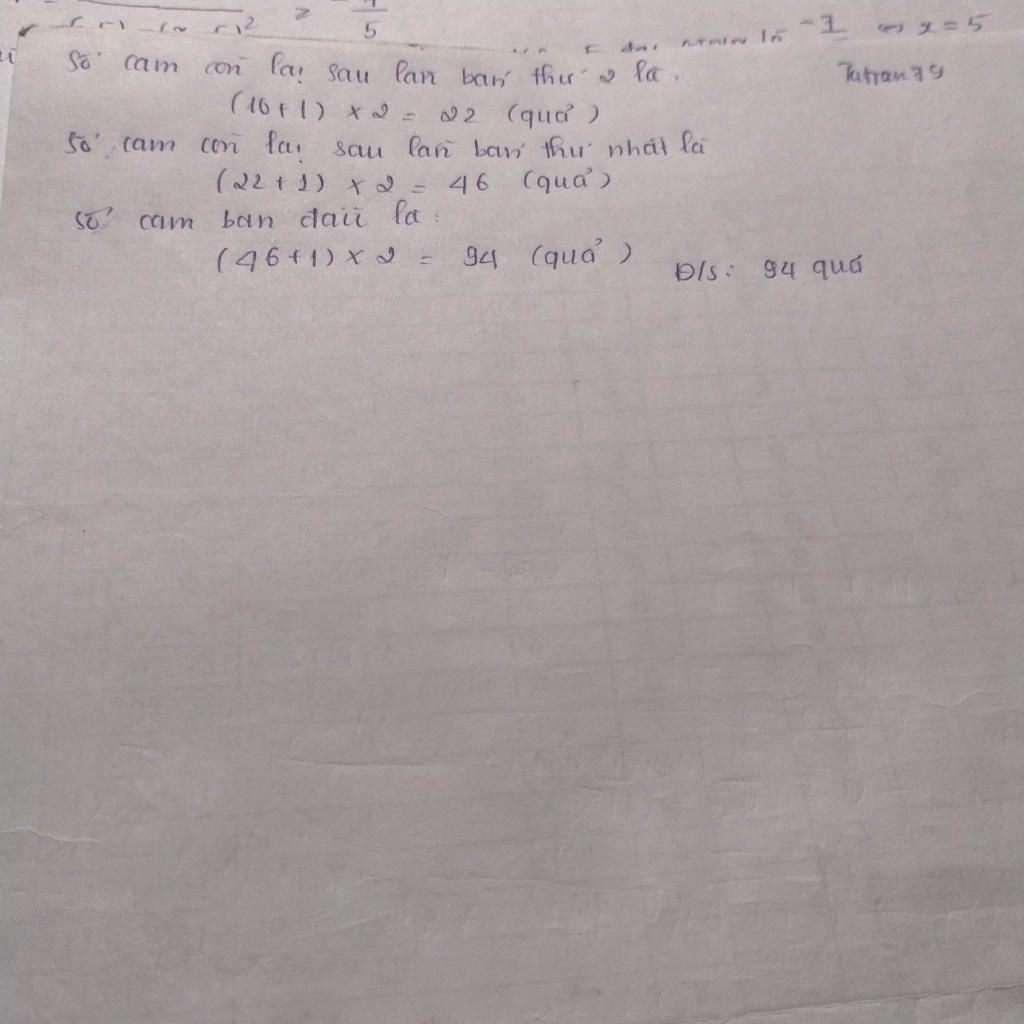 ≥ 5
-1 ⇔ x = 5
Số cam còn lại sau lần bán thứ 2 là.
Tatran79
(10+1) x 2 = 22 (quả)
Số cam còn lại sau lần bán thứ nhất là
(22+1) x 2 = 46 (quả)
Số cam ban đầu là:
(46+1) x 2 = 94 (quả)
Đ/s: 94 quả